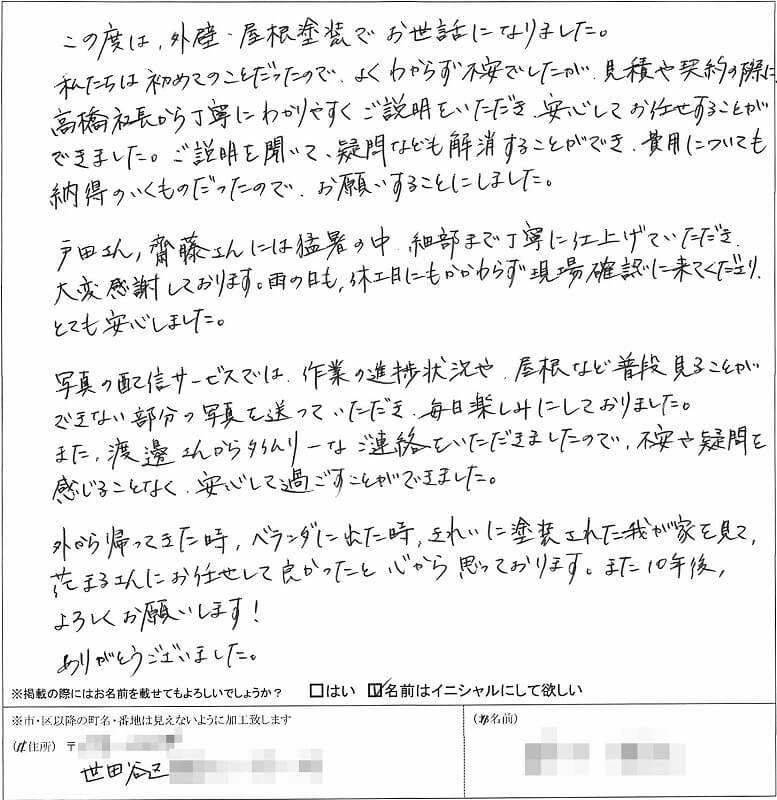 この度は、外壁・屋根塗装でお世話になりました。
私たちは初めてのことだったので、よくわからず不安でしたが、見積や契約の際に
高橋社長から丁寧にわかりやすくご説明をいただき、安心してお任せすることが
できました。ご説明を聞いて、疑問なども解消することができ、費用についても
納得のいくものだったので、お願いすることにしました。
戸田さん、齋藤さんには猛暑の中、細部まで丁寧に仕上げていただき、
大変感謝しております。雨の日も、休工日にもかかわらず現場確認に来てくださり、
とても安心しました。
写真の配信サービスでは、作業の進捗状況や、屋根など普段見ることが
できない部分の写真を送っていただき、毎日楽しみにしておりました。
また、渡邊さんからタイムリーなご連絡をいただきましたので、不安や疑問を
感じることなく、安心して過ごすことができました。
外から帰ってきた時、ベランダに出た時、きれいに塗装された我が家を見て、
花まるさんにお任せして良かったと心から思っております。また10年後、
よろしくお願いします！
ありがとうございました。
※掲載の際にはお名前を載せてもよろしいでしょうか？ □はい ☑名前はイニシャルにして欲しい
※市・区以降の町名・番地は見えないように加工致します
(ご住所) 〒
世田谷区
(お名前)